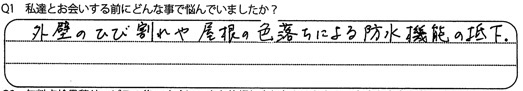 Q1 私達とお会いする前にどんな事で悩んでいましたか？
外壁のひび割れや屋根の色落ちによる防水機能の抵下.